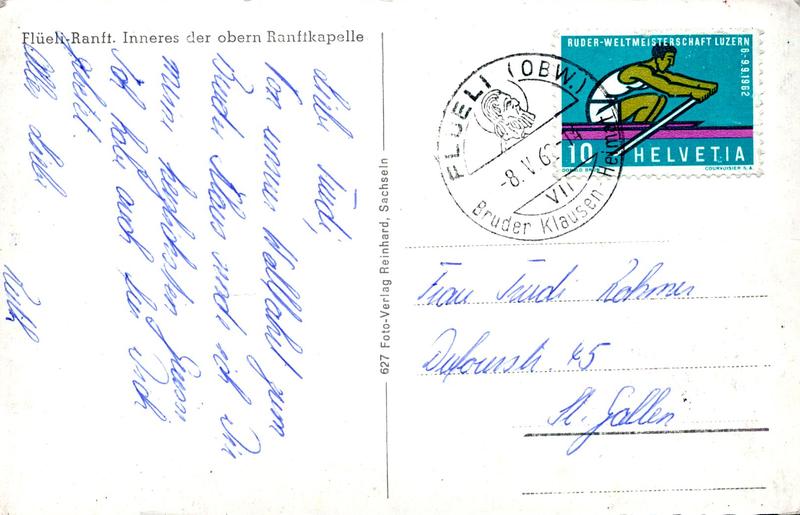 Flüeli-Ranft. Inneres der obern Ranftkapelle
Liebe Trudi,
Von unserer Wallfahrt zum
Bruder Klaus sende ich Dir
meine herzlichsten Grüsse.
Ich habe auch für Dich
gebetet.
Alles Liebe
Ruth
627 Foto-Verlag Reinhard, Sachseln
RUDER-WELTMEISTERSCHAFT LUZERN
6.-9.9.1962
10 HELVETIA
COURVOISIER S.A.
FLÜELI (OBW.)
-8.V.62
VII
Bruder Klausen-Heimat
Frau Trudi Rohner
Dufourstr. 45
St. Gallen